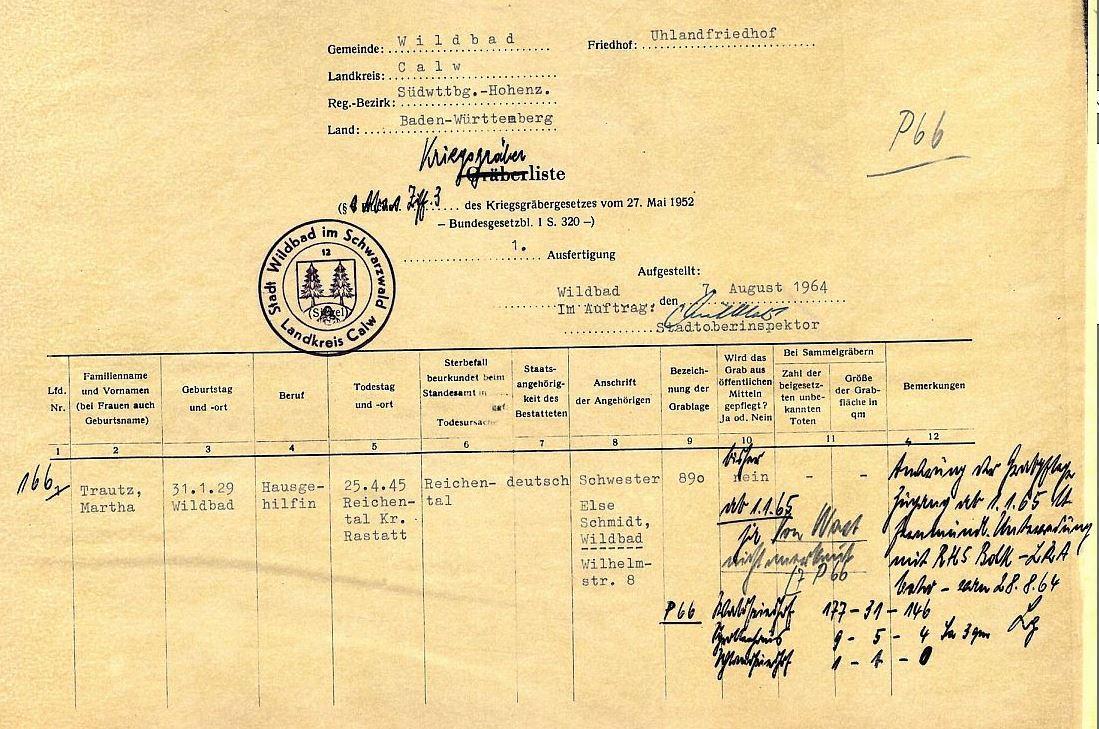 Gemeinde: Wildbad
Friedhof: Uhlandfriedhof
Landkreis: Calw
Reg.-Bezirk: Südwttbg.-Hohenz.
Land: Baden-Württemberg
P66
Kriegsgräber
Gräberliste
(§ Abs. Ziff. 3 des Kriegsgräbergesetzes vom 27. Mai 1952
– Bundesgesetzbl. I S. 320 –)
1. Ausfertigung
Stadt Wildbad im Schwarzwald
12
(Siegel)
Landkreis Calw
Aufgestellt:
Wildbad den 7. August 1964
Im Auftrag:
Stadtoberinspektor
Lfd. Nr.
Familienname und Vornamen (bei Frauen auch Geburtsname)
Geburtstag und -ort
Beruf
Todestag und -ort
Sterbefall beurkundet beim Standesamt in
Todesursache
Staatsangehörigkeit des Bestatteten
Anschrift der Angehörigen
Bezeichnung der Grablage
Wird das Grab aus öffentlichen Mitteln gepflegt? Ja od. Nein
Bei Sammelgräbern
Zahl der beigesetzten unbekannten Toten
Größe der Grabfläche in qm
Bemerkungen
1 2 3 4 5 6 7 8 9 10 11 12
166
Trautz,
Martha
31.1.29
Wildbad
Hausge-
hilfin
25.4.45
Reichen-
tal Kr.
Rastatt
Reichen-
tal
deutsch
Schwester
Else
Schmidt,
Wildbad
Wilhelm-
str. 8
89o
bisher
nein
ab 1.1.65
ja
- -
P 66
Änderung der Grabpflege
Zugang ab 1.1.65 lt
fernmündl. Unterredung
mit
28.8.64
P66 Waldfriedhof 177 - 31 - 146
9 - 5 - 4